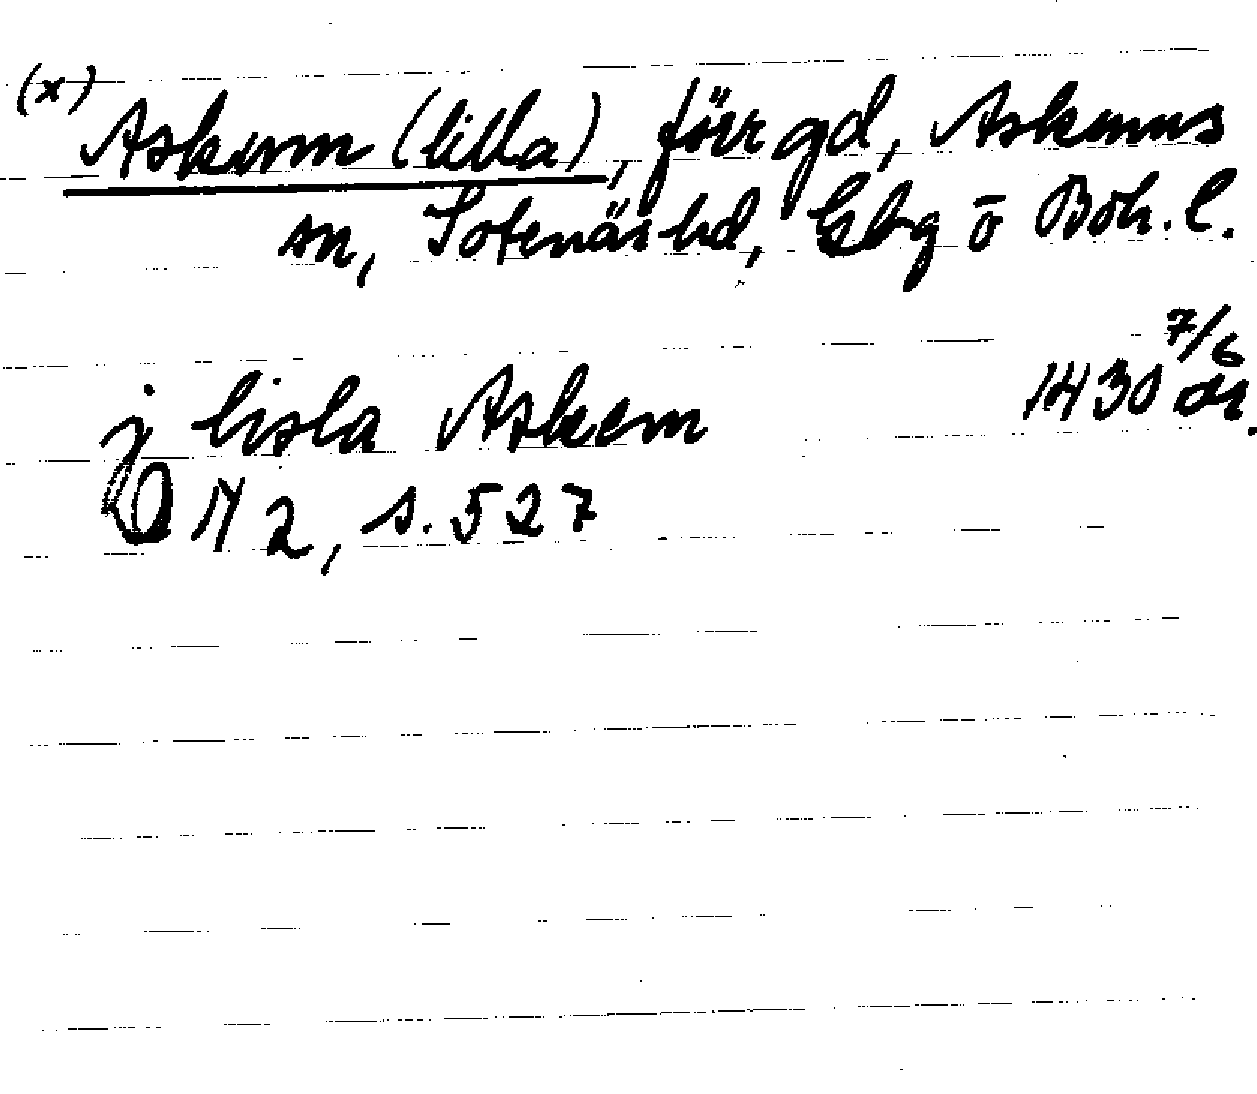 (x) Askum (lilla), förr gd, Askums
sn, Sotenäs hd, Gbg ō Boh. l.
j lisla Askem 1430 7/6 or.
DN 2, s. 527